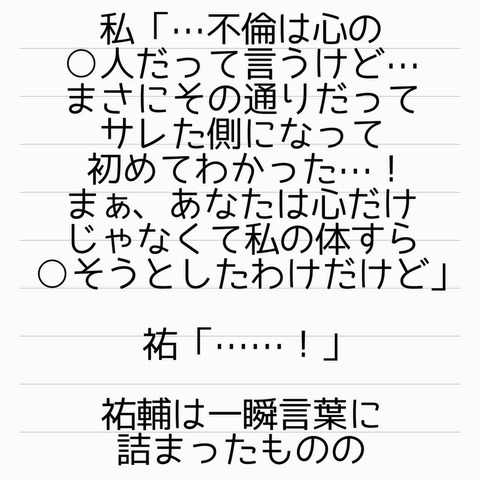 私「…不倫は心の
○人だって言うけど…
まさにその通りだって
サレた側になって
初めてわかった…！
まぁ、あなたは心だけ
じゃなくて私の体すら
○そうとしたわけだけど」
祐「……！」
祐輔は一瞬言葉に
詰まったものの